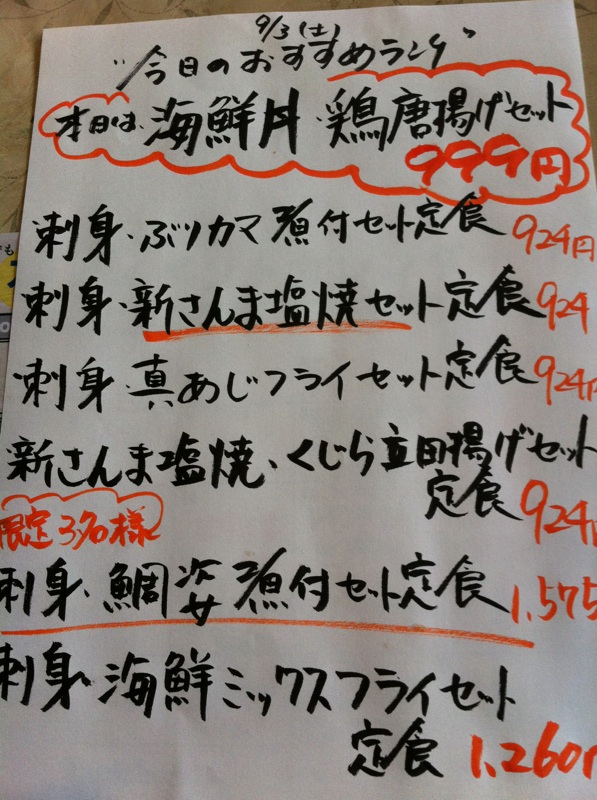 9/3(土)
"今日のおすすめランチ"
本日は、海鮮丼・鶏唐揚げセット
999円
刺身・ぶりカマ煮付セット定食 924円
刺身・新さんま塩焼セット定食 924
刺身・真あじフライセット定食 924円
新さんま塩焼、くじら立田揚げセット
定食 924円
限定3名様
刺身・鯛姿煮付セット定食 1,575
刺身・海鮮ミックスフライセット
定食 1,260円